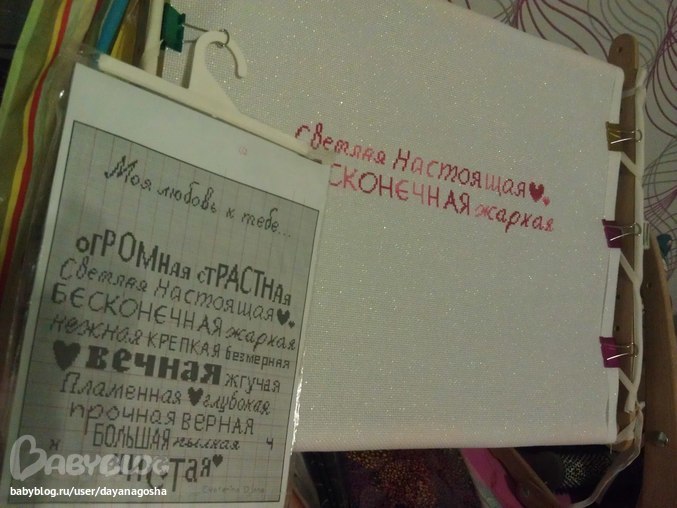 Моя любовь к тебе...
огРОМНая сТРАСТНАЯ
Светлая Настоящая
БЕСКОНЄЧНАЯ жаркая
нежная КРЕПКАЯ безмерная
вечная жгучая
Пламенная глубокая
прочная ВЕРНАЯ
БОЛЬШАЯ пылкая
чистая
Светлая Настоящая
СКОНЄЧНАЯ жаркая
BABYBLOG
babyblog.ru/user/dayanagosha